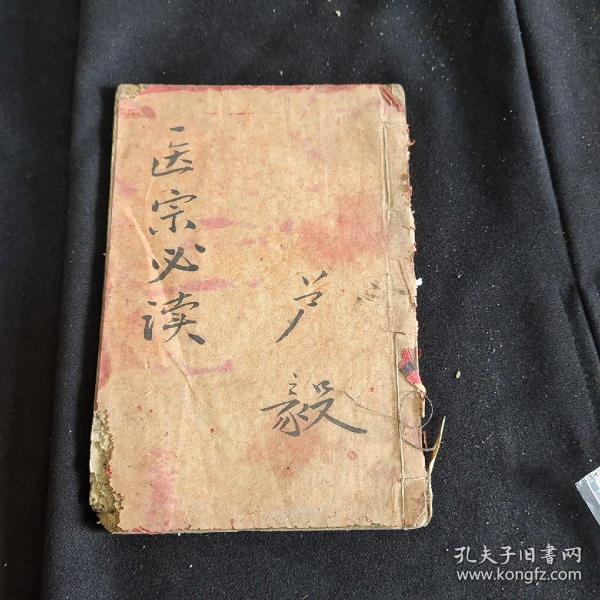 医宗必读
芦毅
孔夫子旧書网
www.kongfz.com